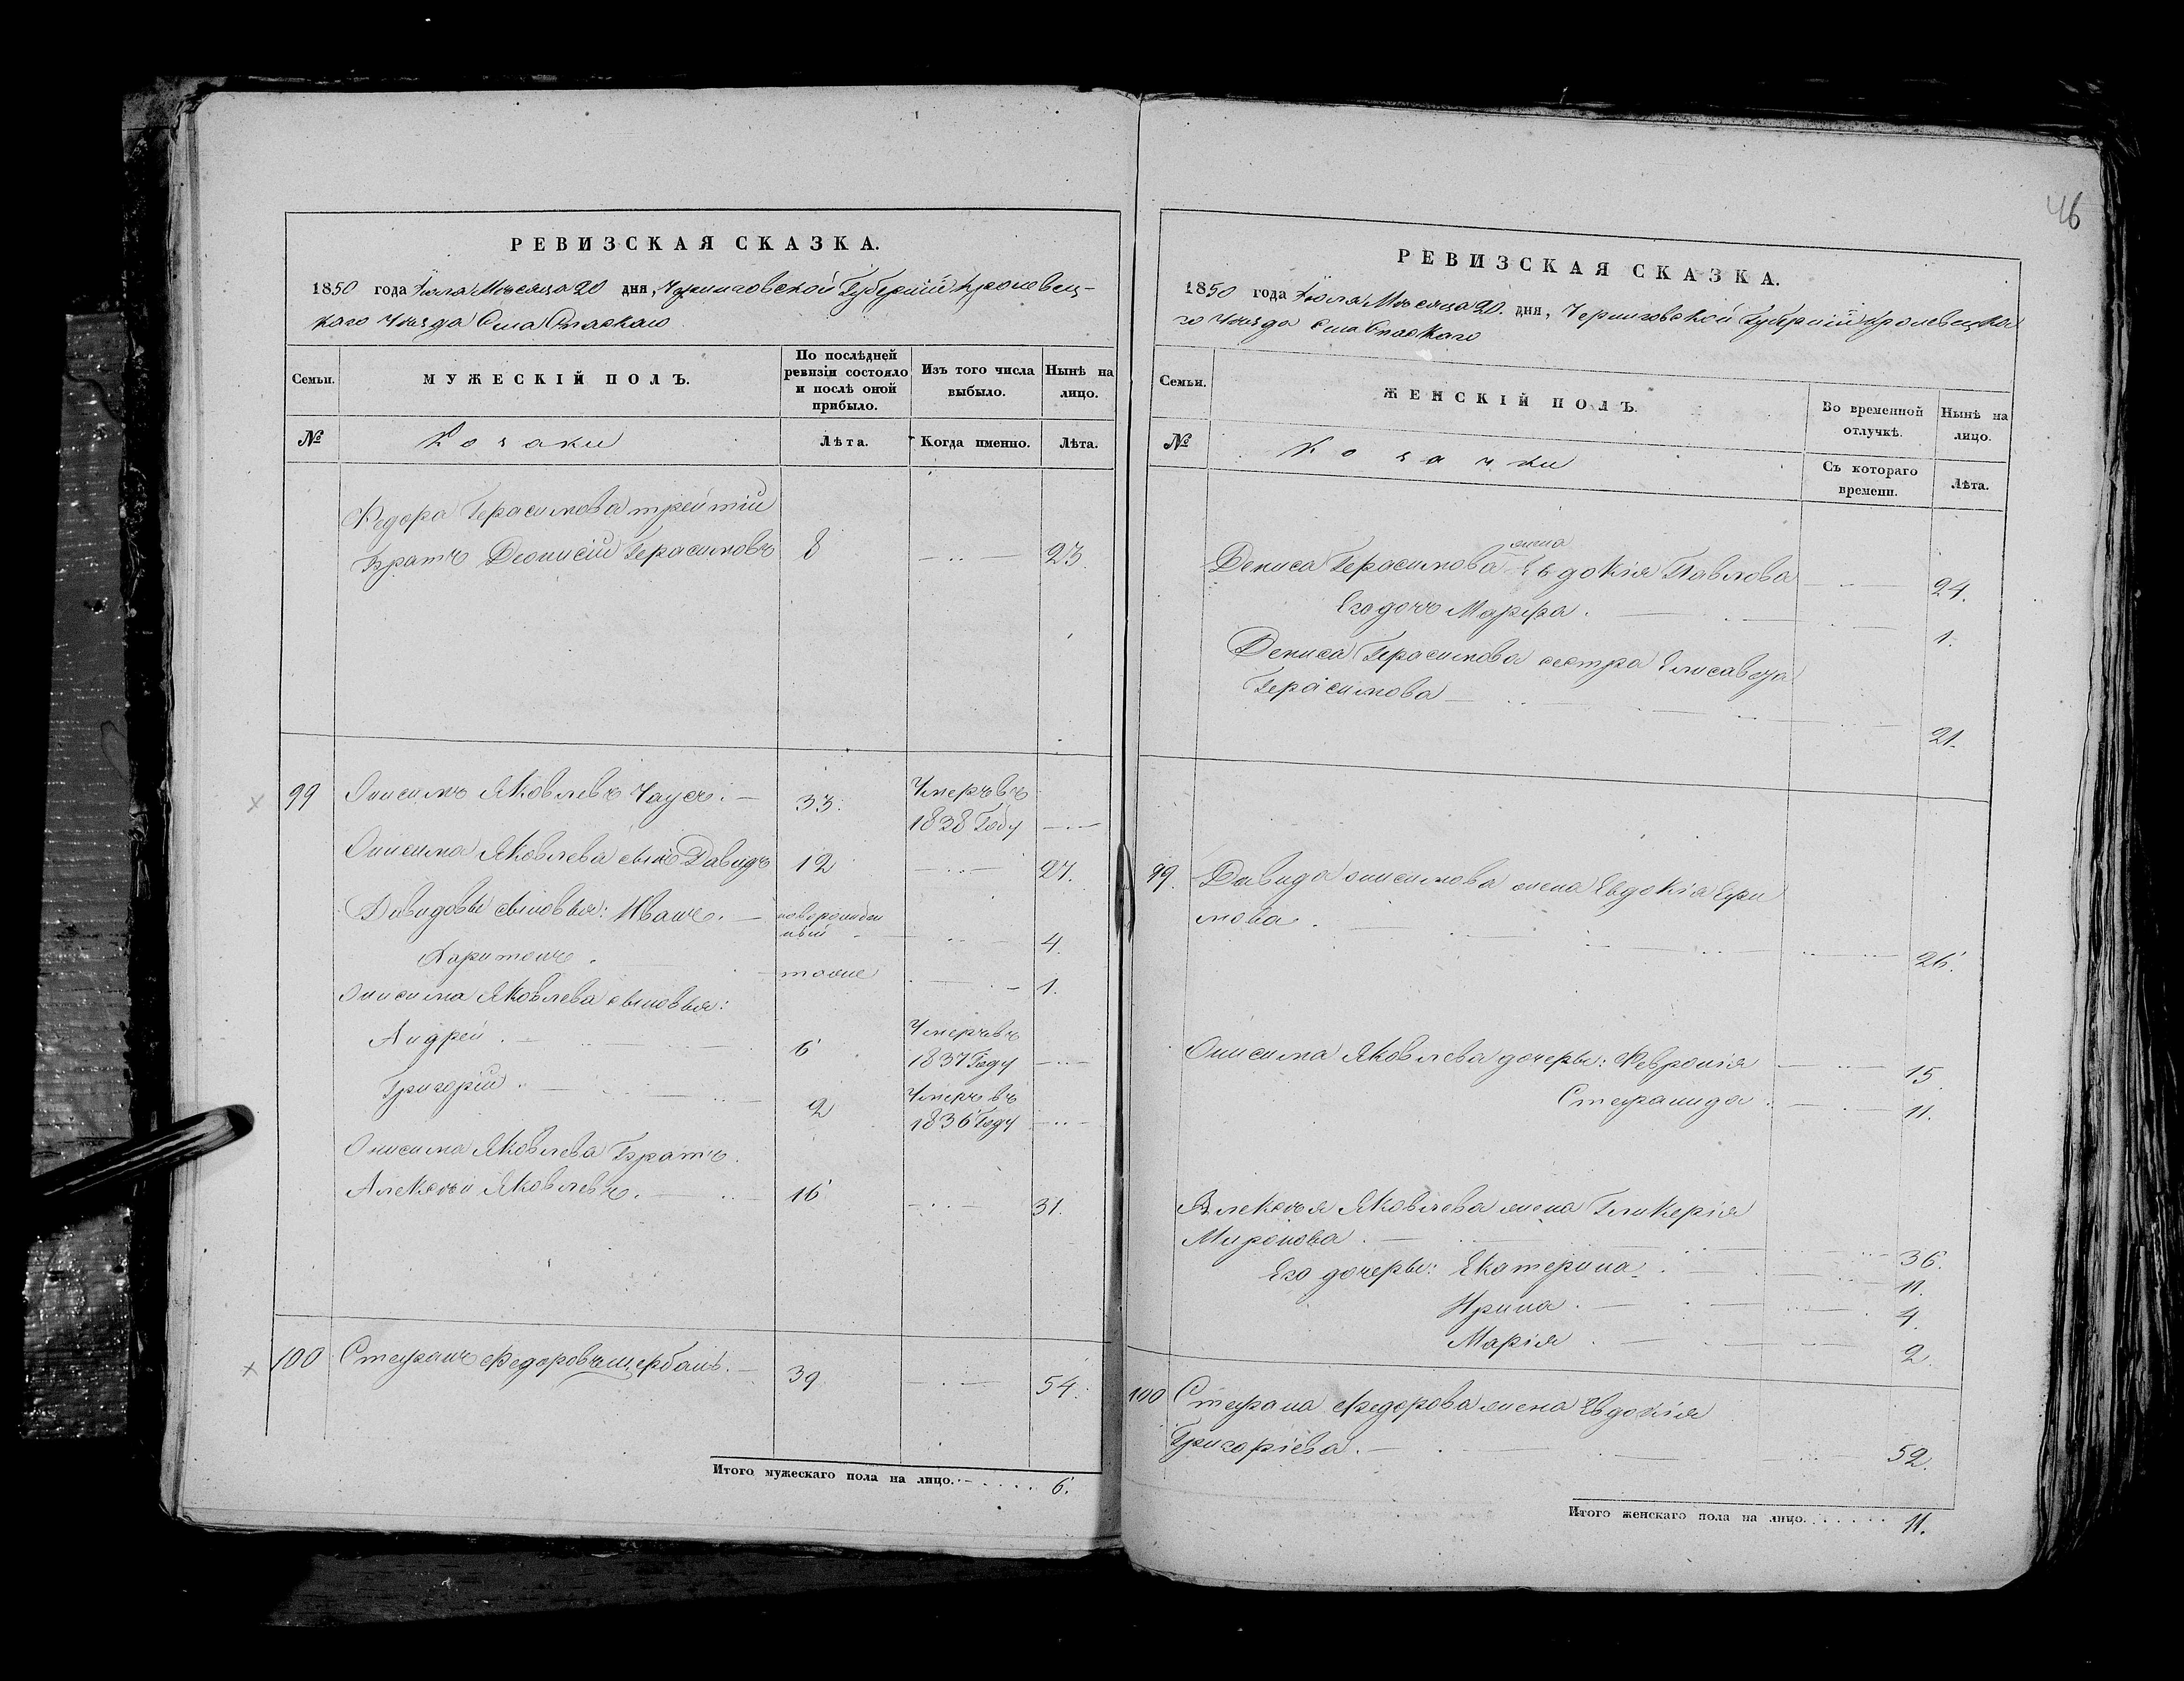 46
РЕВИЗСКАЯ СКАЗКА.
1850 года Іюля Месяца 20 дня, Черниговской Губерніи Кролевец-
каго Уезда Села Спаскаго
Семьи.
МУЖЕСКІЙ ПОЛЪ.
По послѣдней ревизіи состояло и послѣ оной прибыло.
Изъ того числа выбыло.
Нынѣ на лицо.
№
Козаки
Лѣта.
Когда именно.
Лѣта.
Федора Герасимова третій
Братъ Деонисій Герасимовъ 8 23.
99 Онисимъ Яковлевъ Чаусъ. 33. Умеръ въ
1838 Году
Онисима Яковлева сынъ Давидъ 12 27.
Давидовы сыновья: Иванъ. новорожден
ный 4.
Харитонъ. тоже 1.
Онисима Яковлева сыновья:
Андрей. 6 Умеръ въ
1837 Году
Григорій. 2 Умеръ въ
1836 Году
Онисима Яковлева Братъ
Алексей Яковлевъ. 16 31.
100 Стефанъ Федоровъ Щербакъ. 39 54.
Итого мужескаго пола на лицо. 6.
РЕВИЗСКАЯ СКАЗКА.
1850 года Іюля Месяца 20. дня, Черниговской Губерніи Кролевецка
го Уезда села Спаскаго
Семьи.
ЖЕНСКІЙ ПОЛЪ.
Во временной отлучкѣ.
Нынѣ на лицо.
№
Козачки
Съ котораго времени.
Лѣта.
жена
Дениса Герасимова Евдокія Павлова 24.
Его дочь Марфа. 1.
Дениса Герасимова сестра Елисавета
Герасимова 21.
99. Давида Онисимова жена Евдокія Ефи
мова. 26.
Онисима Яковлева дочеры: Февронія 15.
Стефанида. 11.
Алексея Яковлева жена Гликерія
Миронова. 36.
Его дочеры: Екатерина. 11.
Ирина. 4.
Марія 2.
100 Стефана Федорова жена Евдокія
Григоріева. 52.
Итого женскаго пола на лицо. 11.